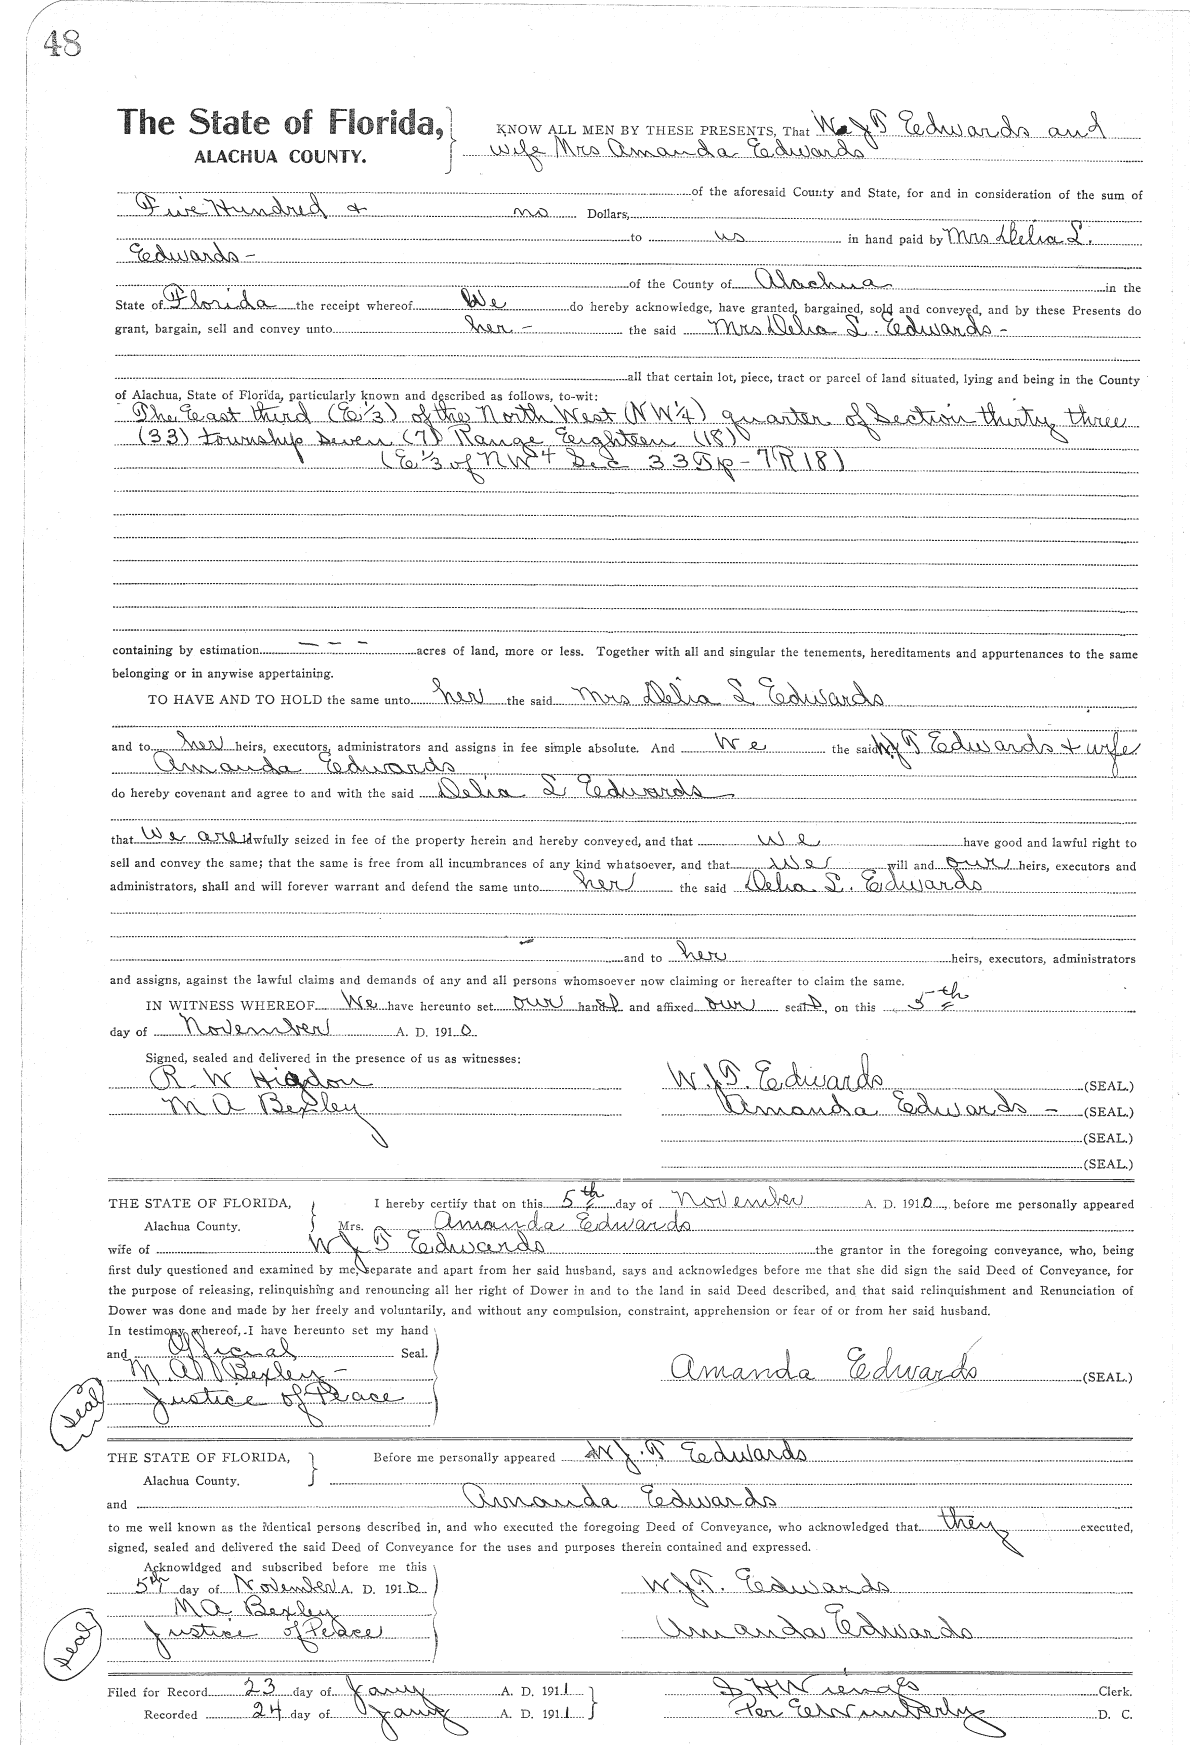 48
The State of Florida, KNOW ALL MEN BY THESE PRESENTS, That W. J T Edwards and
ALACHUA COUNTY. wife Mrs Amanda Edwards
of the aforesaid County and State, for and in consideration of the sum of
Five Hundred + no Dollars,
to us in hand paid by Mrs Delia L.
Edwards -
of the County of Alachua in the
State of Florida the receipt whereof We do hereby acknowledge, have granted, bargained, sold and conveyed, and by these Presents do
grant, bargain, sell and convey unto her - the said Mrs Delia L. Edwards -
all that certain lot, piece, tract or parcel of land situated, lying and being in the County
of Alachua, State of Florida, particularly known and described as follows, to-wit:
The East third (E 1/3) of the North West (NW 1/4) quarter of Section thirty three
(33) township seven (7) Range Eighteen (18)
(E 1/3 of NW 4 Sec 33 Tp - 7 R 18)
containing by estimation - - - acres of land, more or less. Together with all and singular the tenements, hereditaments and appurtenances to the same
belonging or in anywise appertaining.
TO HAVE AND TO HOLD the same unto her the said Mrs Delia L Edwards
and to her heirs, executors, administrators and assigns in fee simple absolute. And We the said W J T Edwards + wife
Amanda Edwards
do hereby covenant and agree to and with the said Delia L Edwards
that We are lawfully seized in fee of the property herein and hereby conveyed, and that we have good and lawful right to
sell and convey the same; that the same is free from all incumbrances of any kind whatsoever, and that we will and our heirs, executors and
administrators, shall and will forever warrant and defend the same unto her the said Delia L. Edwards
and to her heirs, executors, administrators
and assigns, against the lawful claims and demands of any and all persons whomsoever now claiming or hereafter to claim the same.
IN WITNESS WHEREOF We have hereunto set our hands and affixed our seals, on this 5th
day of November A. D. 1910
Signed, sealed and delivered in the presence of us as witnesses:
R. W Higdon W. J T. Edwards (SEAL.)
M A Bexley Amanda Edwards - (SEAL.)
(SEAL.)
(SEAL.)
THE STATE OF FLORIDA, I hereby certify that on this 5th day of November A. D. 1910, before me personally appeared
Alachua County. Mrs. Amanda Edwards
wife of W J T Edwards the grantor in the foregoing conveyance, who, being
first duly questioned and examined by me, separate and apart from her said husband, says and acknowledges before me that she did sign the said Deed of Conveyance, for
the purpose of releasing, relinquishing and renouncing all her right of Dower in and to the land in said Deed described, and that said relinquishment and Renunciation of
Dower was done and made by her freely and voluntarily, and without any compulsion, constraint, apprehension or fear of or from her said husband.
In testimony whereof, I have hereunto set my hand
and Official Seal.
M A Bexley - Amanda Edwards (SEAL.)
Seal Justice of Peace
THE STATE OF FLORIDA, Before me personally appeared W J. T Edwards
Alachua County.
and Amanda Edwards
to me well known as the identical persons described in, and who executed the foregoing Deed of Conveyance, who acknowledged that they executed,
signed, sealed and delivered the said Deed of Conveyance for the uses and purposes therein contained and expressed.
Acknowldged and subscribed before me this
5th day of November A. D. 1910 W J. T. Edwards
M A. Bexley
Seal Justice of Peace Amanda Edwards
Filed for Record 23 day of Jany A. D. 1911 Clerk.
Recorded 24 day of Jany A. D. 1911 Per E Wimberly D. C.